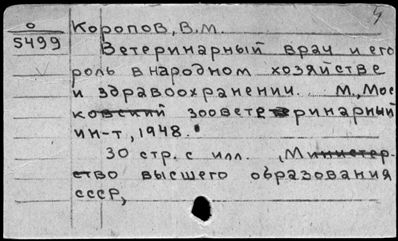 4
О
5499
Коропов, В.М.
Ветеринарный врач и его
роль в народном хозяйстве
и здравоохранении. М., Мос
ковский зооветеринарный
ин-т, 1948.
30 стр. с илл. (Министер-
ство высшего образования
СССР,